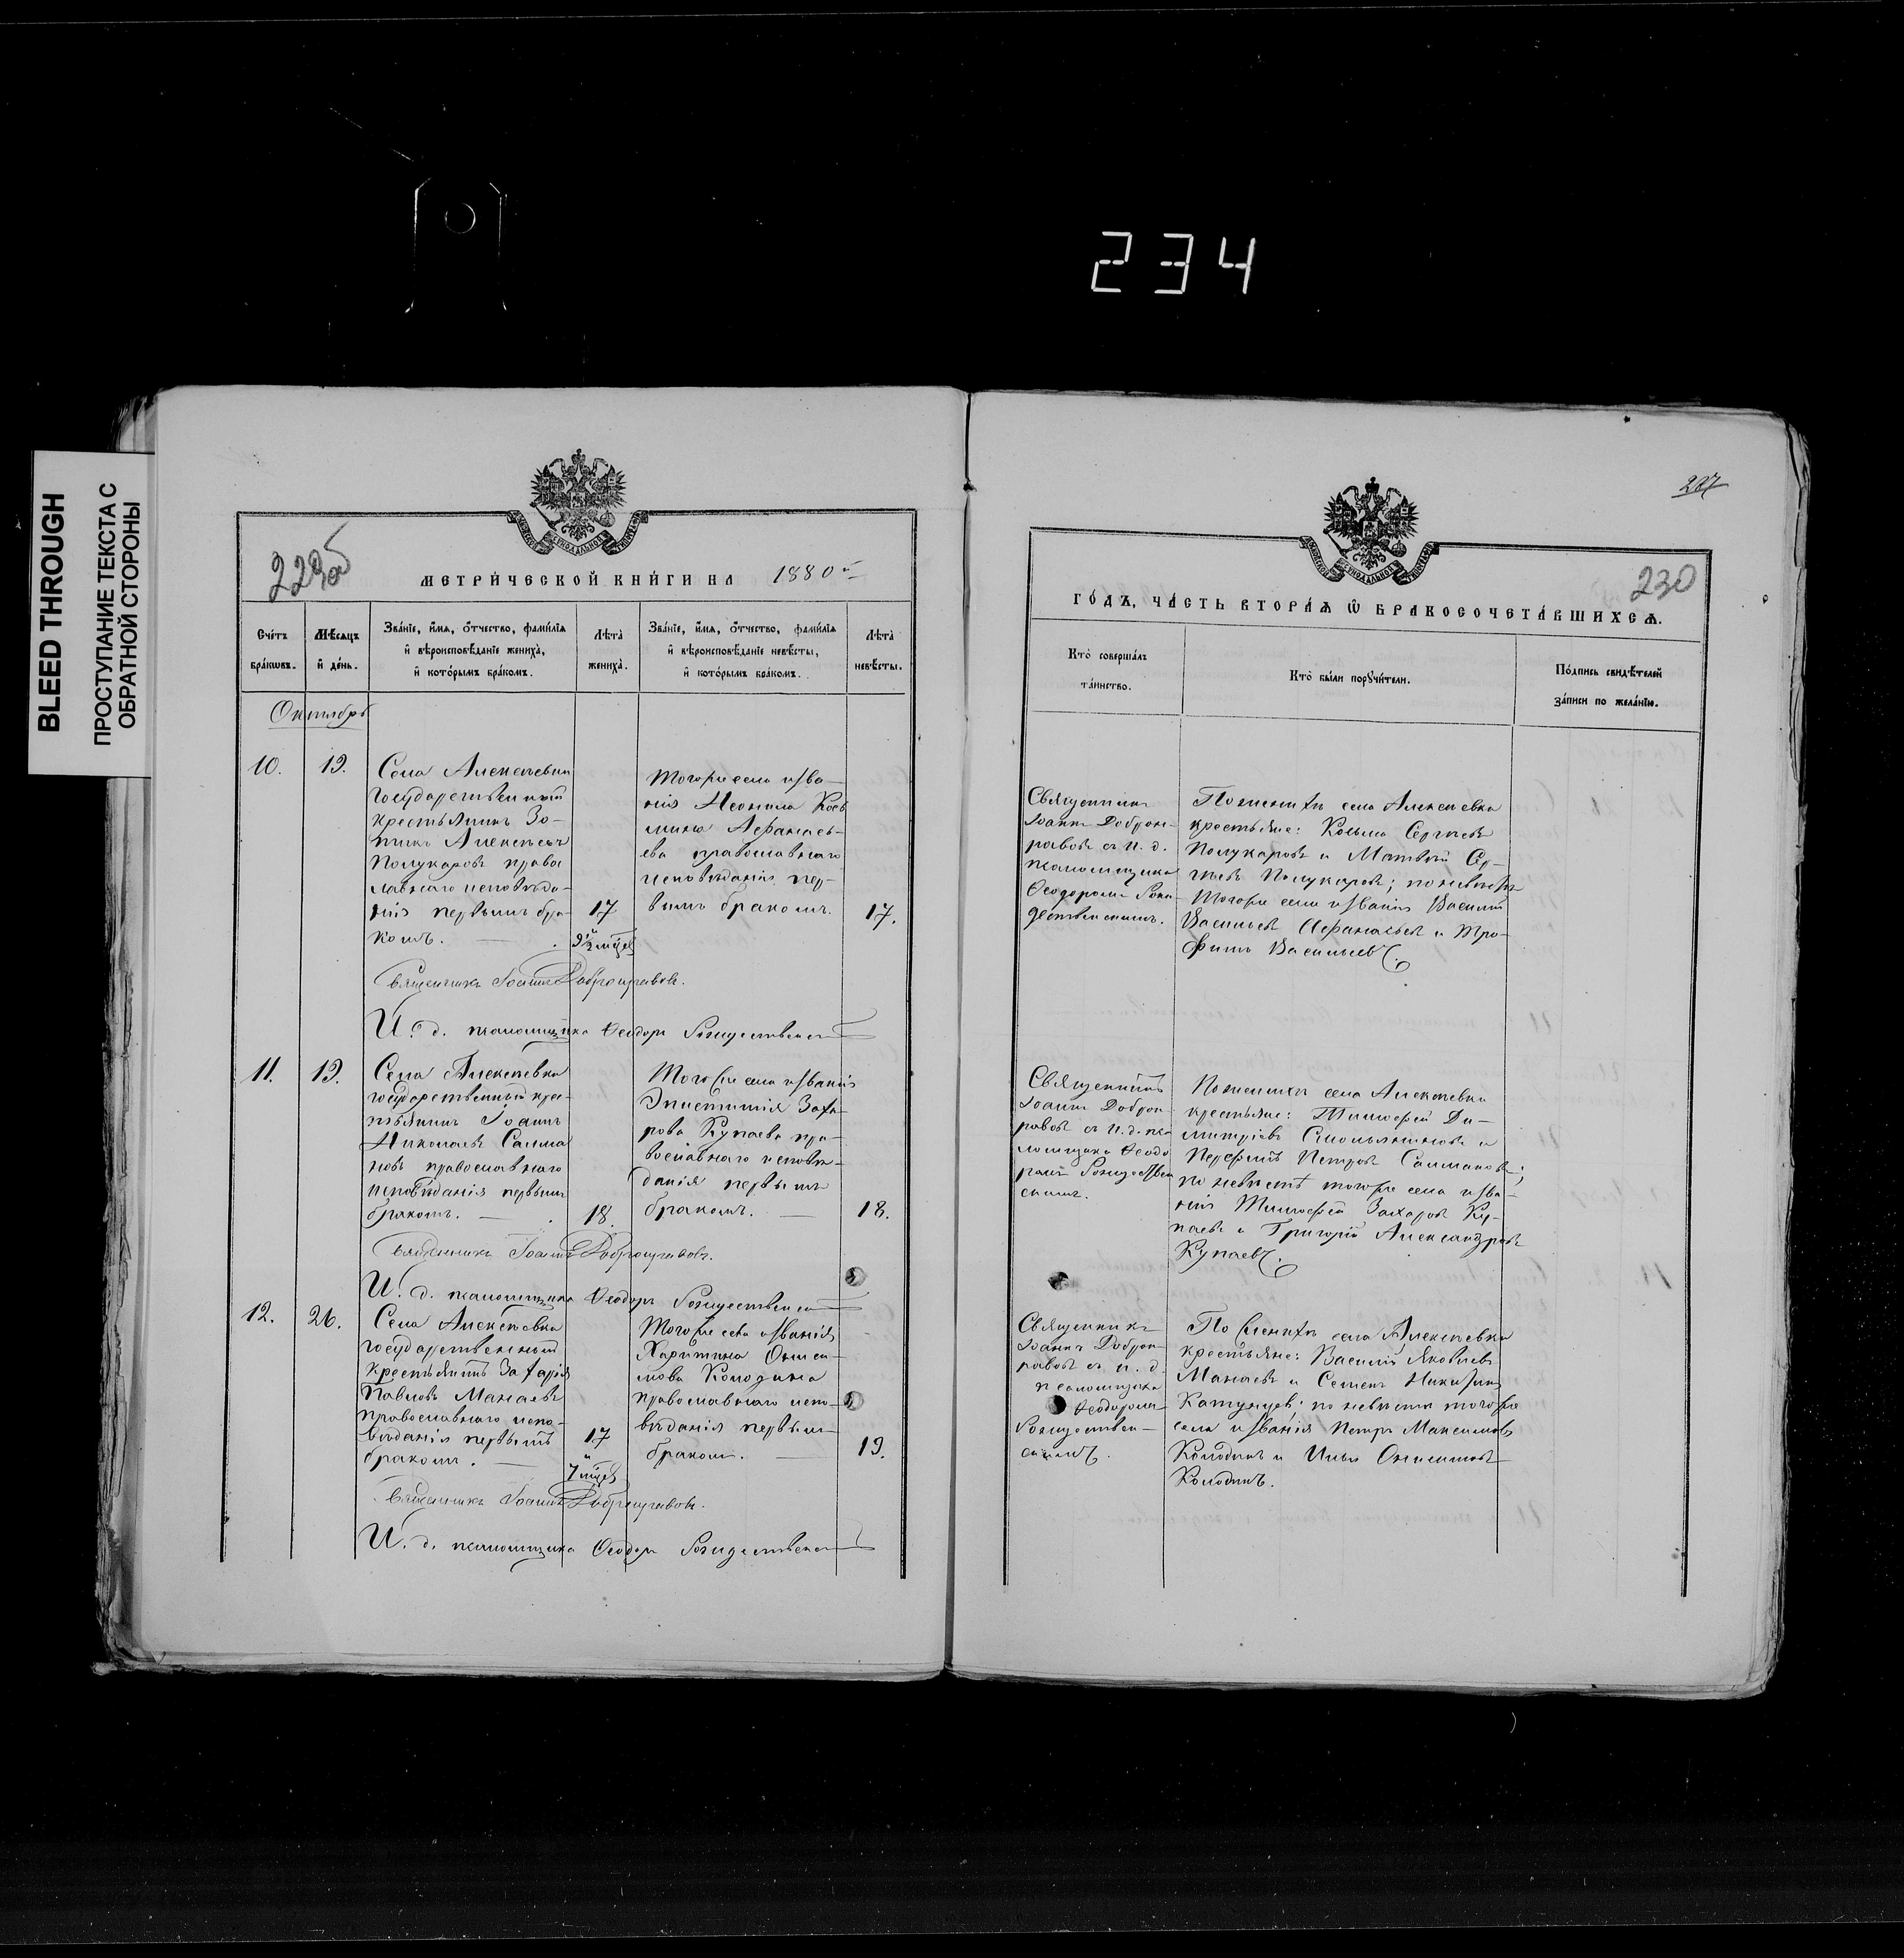 234
BLEED THROUGH
ПРОСТУПАНИЕ ТЕКСТА С
ОБРАТНОЙ СТОРОНЫ
229об
МЕТРИЧЕСКОЙ КНИГИ НА 1880й
Счетъ браковъ.
Мѣсяцъ и день.
Званіе, имя, отчество, фамилія
и вѣроисповѣданіе жениха,
и которымъ бракомъ.
Лѣта жениха.
Званіе, имя, отчество, фамилія
и вѣроисповѣданіе невѣсты,
и которымъ бракомъ.
Лѣта невѣсты.
Октябрь
10.
19.
Села Алексѣевки
государственный
крестьянинъ Зо-
тикъ Алексѣевъ
Полукаровъ право
славнаго исповѣда-
нія первымъ бра-
комъ.
17
и
9½ мѣсяц
Того же села и зва-
нія Неонила Косъ
мина Афанась-
ева православнаго
исповѣданія пер-
вымъ бракомъ.
17.
Священникъ Іоаннъ Добронравовъ.
И. д. псаломщика Ѳеодоръ Рождественск
11.
19.
Села Алексѣевки
государственный крес-
тьянинъ Іоаннъ
Николаевъ Салма
новъ православнаго
исповѣданія первымъ
бракомъ.
18.
Того же села и званія
Эпистимія Заха-
рова Купаева пра-
вославнаго исповѣ-
данія первымъ
бракомъ.
18.
Священникъ Іоаннъ Добронравовъ.
И. д. псаломщика Ѳеодоръ Рождественск
12.
26.
Села Алексѣевки
государственный
крестьянинъ Захарія
Павловъ Манаевъ
православнаго испо-
вѣданія первымъ
бракомъ.
17
и
7 мѣсяц
Того же села и званія
Харитина Ониси-
мова Колодина
православнаго испо-
вѣданія первым
бракомъ.
19.
Священникъ Іоаннъ Добронравовъ.
И. д. псаломщика Ѳеодоръ Рождественск
227
230
ГОДЪ, ЧАСТЬ ВТОРАЯ Ѡ БРАКОСОЧЕТАВШИХСЯ.
Кто совершалъ
таинство.
Кто были поручители.
Подпись свидѣтелей
записи по желанію.
Священникъ
Іоаннъ Доброн-
равовъ съ и. д.
псаломщика
Ѳеодоромъ Рож-
дественскимъ.
По женихѣ села Алексѣевки
крестьяне: Косьма Сергѣевъ
Полукаровъ и Матвѣй Сер-
гѣевъ Полукаровъ; по невѣстѣ
того же села и званія Василій
Васильевъ Афанасьевъ и Тро-
фимъ Васильевъ.
Священникъ
Іоаннъ Доброн
равовъ съ и. д. пса
ломщика Ѳеодо
ромъ Рождествен
скимъ.
По женихѣ села Алексѣевки
крестьяне: Тимоѳей Ди-
митріевъ Смольяниновъ и
Перфилъ Петровъ Салмановъ;
по невѣстѣ того же села и зва-
нія Тимоѳей Захаровъ Ку-
паевъ и Григорій Александровъ
Купаевъ.
Священникъ
Іоаннъ Доброн
равовъ съ и. д.
псаломщика
Ѳеодоромъ
Рождествен-
скимъ.
По женихѣ села Алексѣевки
крестьяне: Василій Яковлевъ
Манаевъ и Семенъ Никитинъ
Катунцевъ; по невѣстѣ того же
села и званія Петръ Максимовъ
Колодинъ и Илья Онисимовъ
Колодинъ.